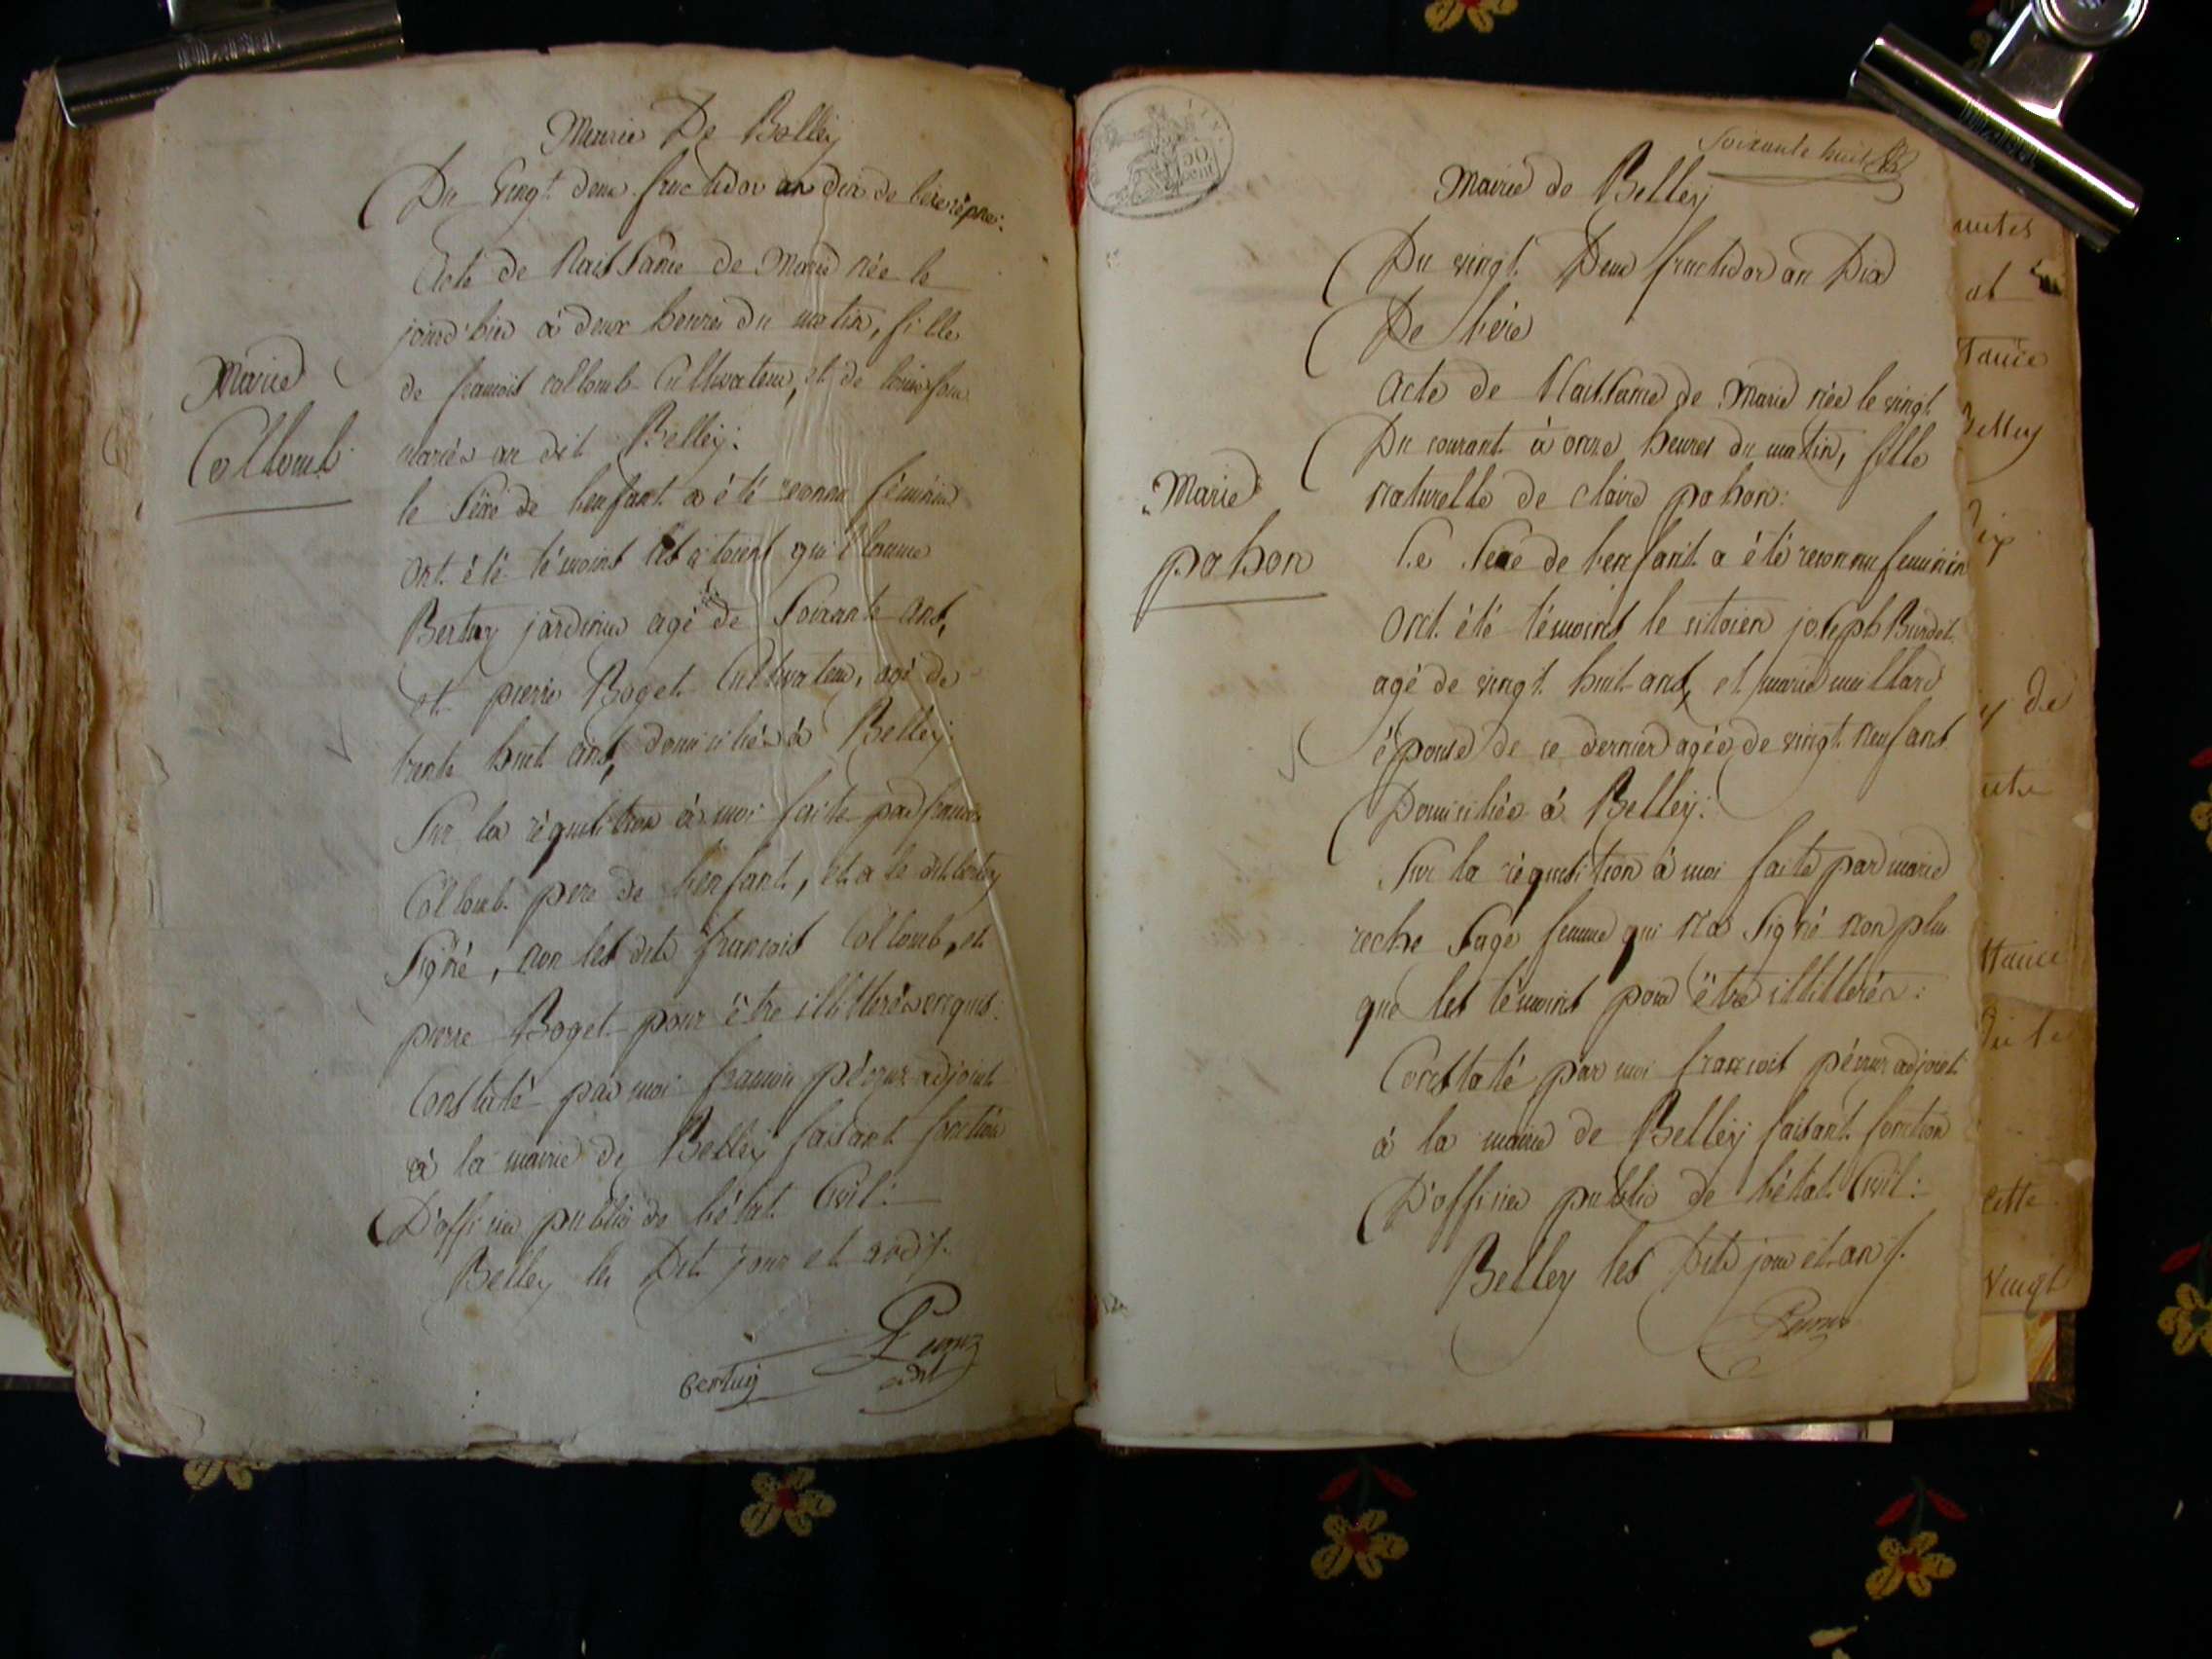 Mairie De Belley
Du Vingt deux fructidor an dix de l'ere repne:
Acte de Naissance de Marie née le
jourd'hui à deux heures du matin, fille
de francois collomb Cultivateur, et de
mariés au dit Belley:
Marie
Collomb
le Sexe de l'enfant a été reconnu féminin
ont été témoins les citoiens guillaume
Bertuy jardinier agé de Soixante ans,
et pierre Boget Cultivateur, agé de
trente huit ans, domiciliés à Belley:
Sur la réquisition à moi faite par francois
Collomb pere de l'enfant, et a le dit bertuy
Signé, non les dits francois Collomb, et
pierre Boget pour être illittérés enquis:
Constaté par moi francois péronz adjoint
à la mairie de Belley faisant fonction
D'officier public de l'état Civil:
Belley les Dit jour et an
bertuy
adjt
Soixante huit
Mairie de Belley
Du vingt Deux fructidor an Dix
De l'ère
Acte de Naissance de Marie née le vingt
Du courant à onze heures du matin, fille
naturelle de claire pahon:
Marie
pahon
Le Sexe de l'enfant a été reconnu feminin
ont été témoins le citoien joseph Burdet
agé de vingt huit ans, et marie millard
épouse de ce dernier agée de vingt neuf ans
Domiciliés à Belley:
Sur la réquisition à moi faite par marie
reche Sage femme qui n'a Signé non plus
que les témoins pour être illittérés:
Constaté par moi francois péronz adjoint
à la mairie de Belley faisant fonction
D'officier public de l'état Civil:
Belley les Dits jour et an
Belley
de
cette
vingt